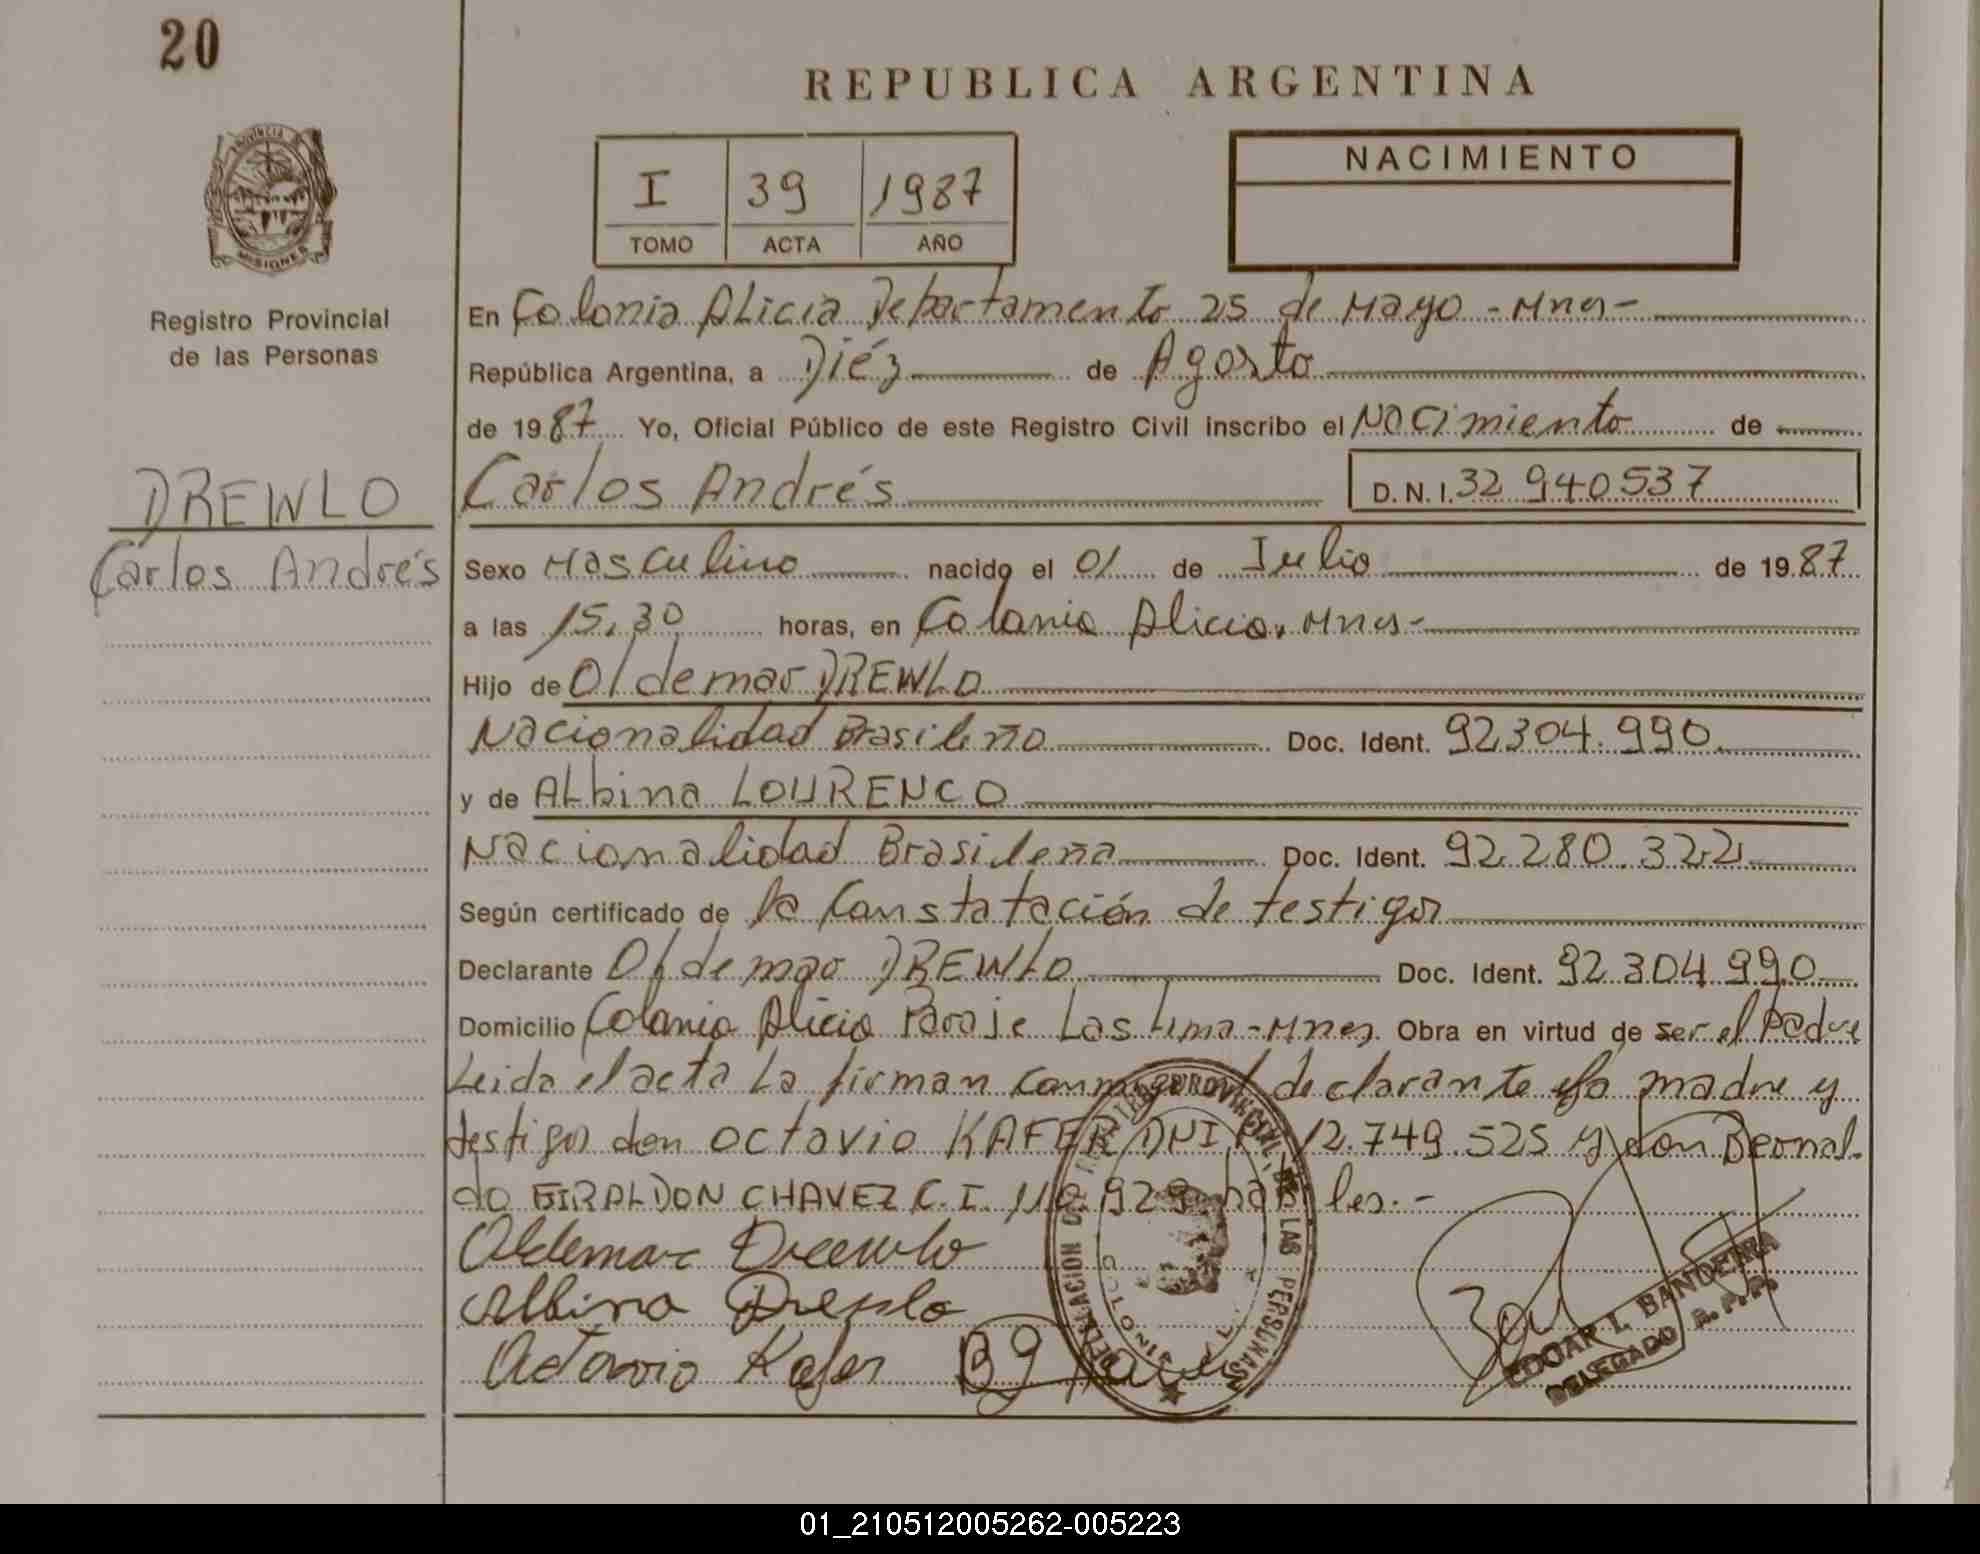 20
REPUBLICA ARGENTINA
PROVINCIA
MISIONES
I 39 1987
TOMO ACTA AÑO
NACIMIENTO
Registro Provincial
de las Personas
DREWLO
Carlos Andrés
En Colonia Alicia Departamento 25 de Mayo - Mnes-
República Argentina, a Diéz de Agosto
de 1987 Yo, Oficial Público de este Registro Civil inscribo el Nacimiento de
Carlos Andrés D.N.I. 32 940537
Sexo Masculino nacido el 01 de Julio de 1987
a las 15,30 horas, en Colonia Alicia. Mnes-
Hijo de Oldemar DREWLO
Nacionalidad Brasileño Doc. Ident. 92304.990
y de Albina LOURENCO
Nacionalidad Brasileña Doc. Ident. 92.280.322
Según certificado de la Constatación de testigos
Declarante Oldemar DREWLO Doc. Ident. 92304990
Domicilio Colonia Alicia Paraje Lastima-Mnes. Obra en virtud de ser el Padre
Leida el acta La firman conmigo el declarante y la madre y
testigos don Octavio KAFER DNI 12.749.525 y don Bernal-
do GIRALDON CHAVEZ C.I. 110.929 habiles.-
Oldemar Dreewlo
Albina Drewlo
Octavio Kafer
DELEGACION PROVINCIAL DE LAS PERSONAS
COLONIA
EDGAR I. BANDEIRA
DELEGADO R.P.P.
01_210512005262-005223